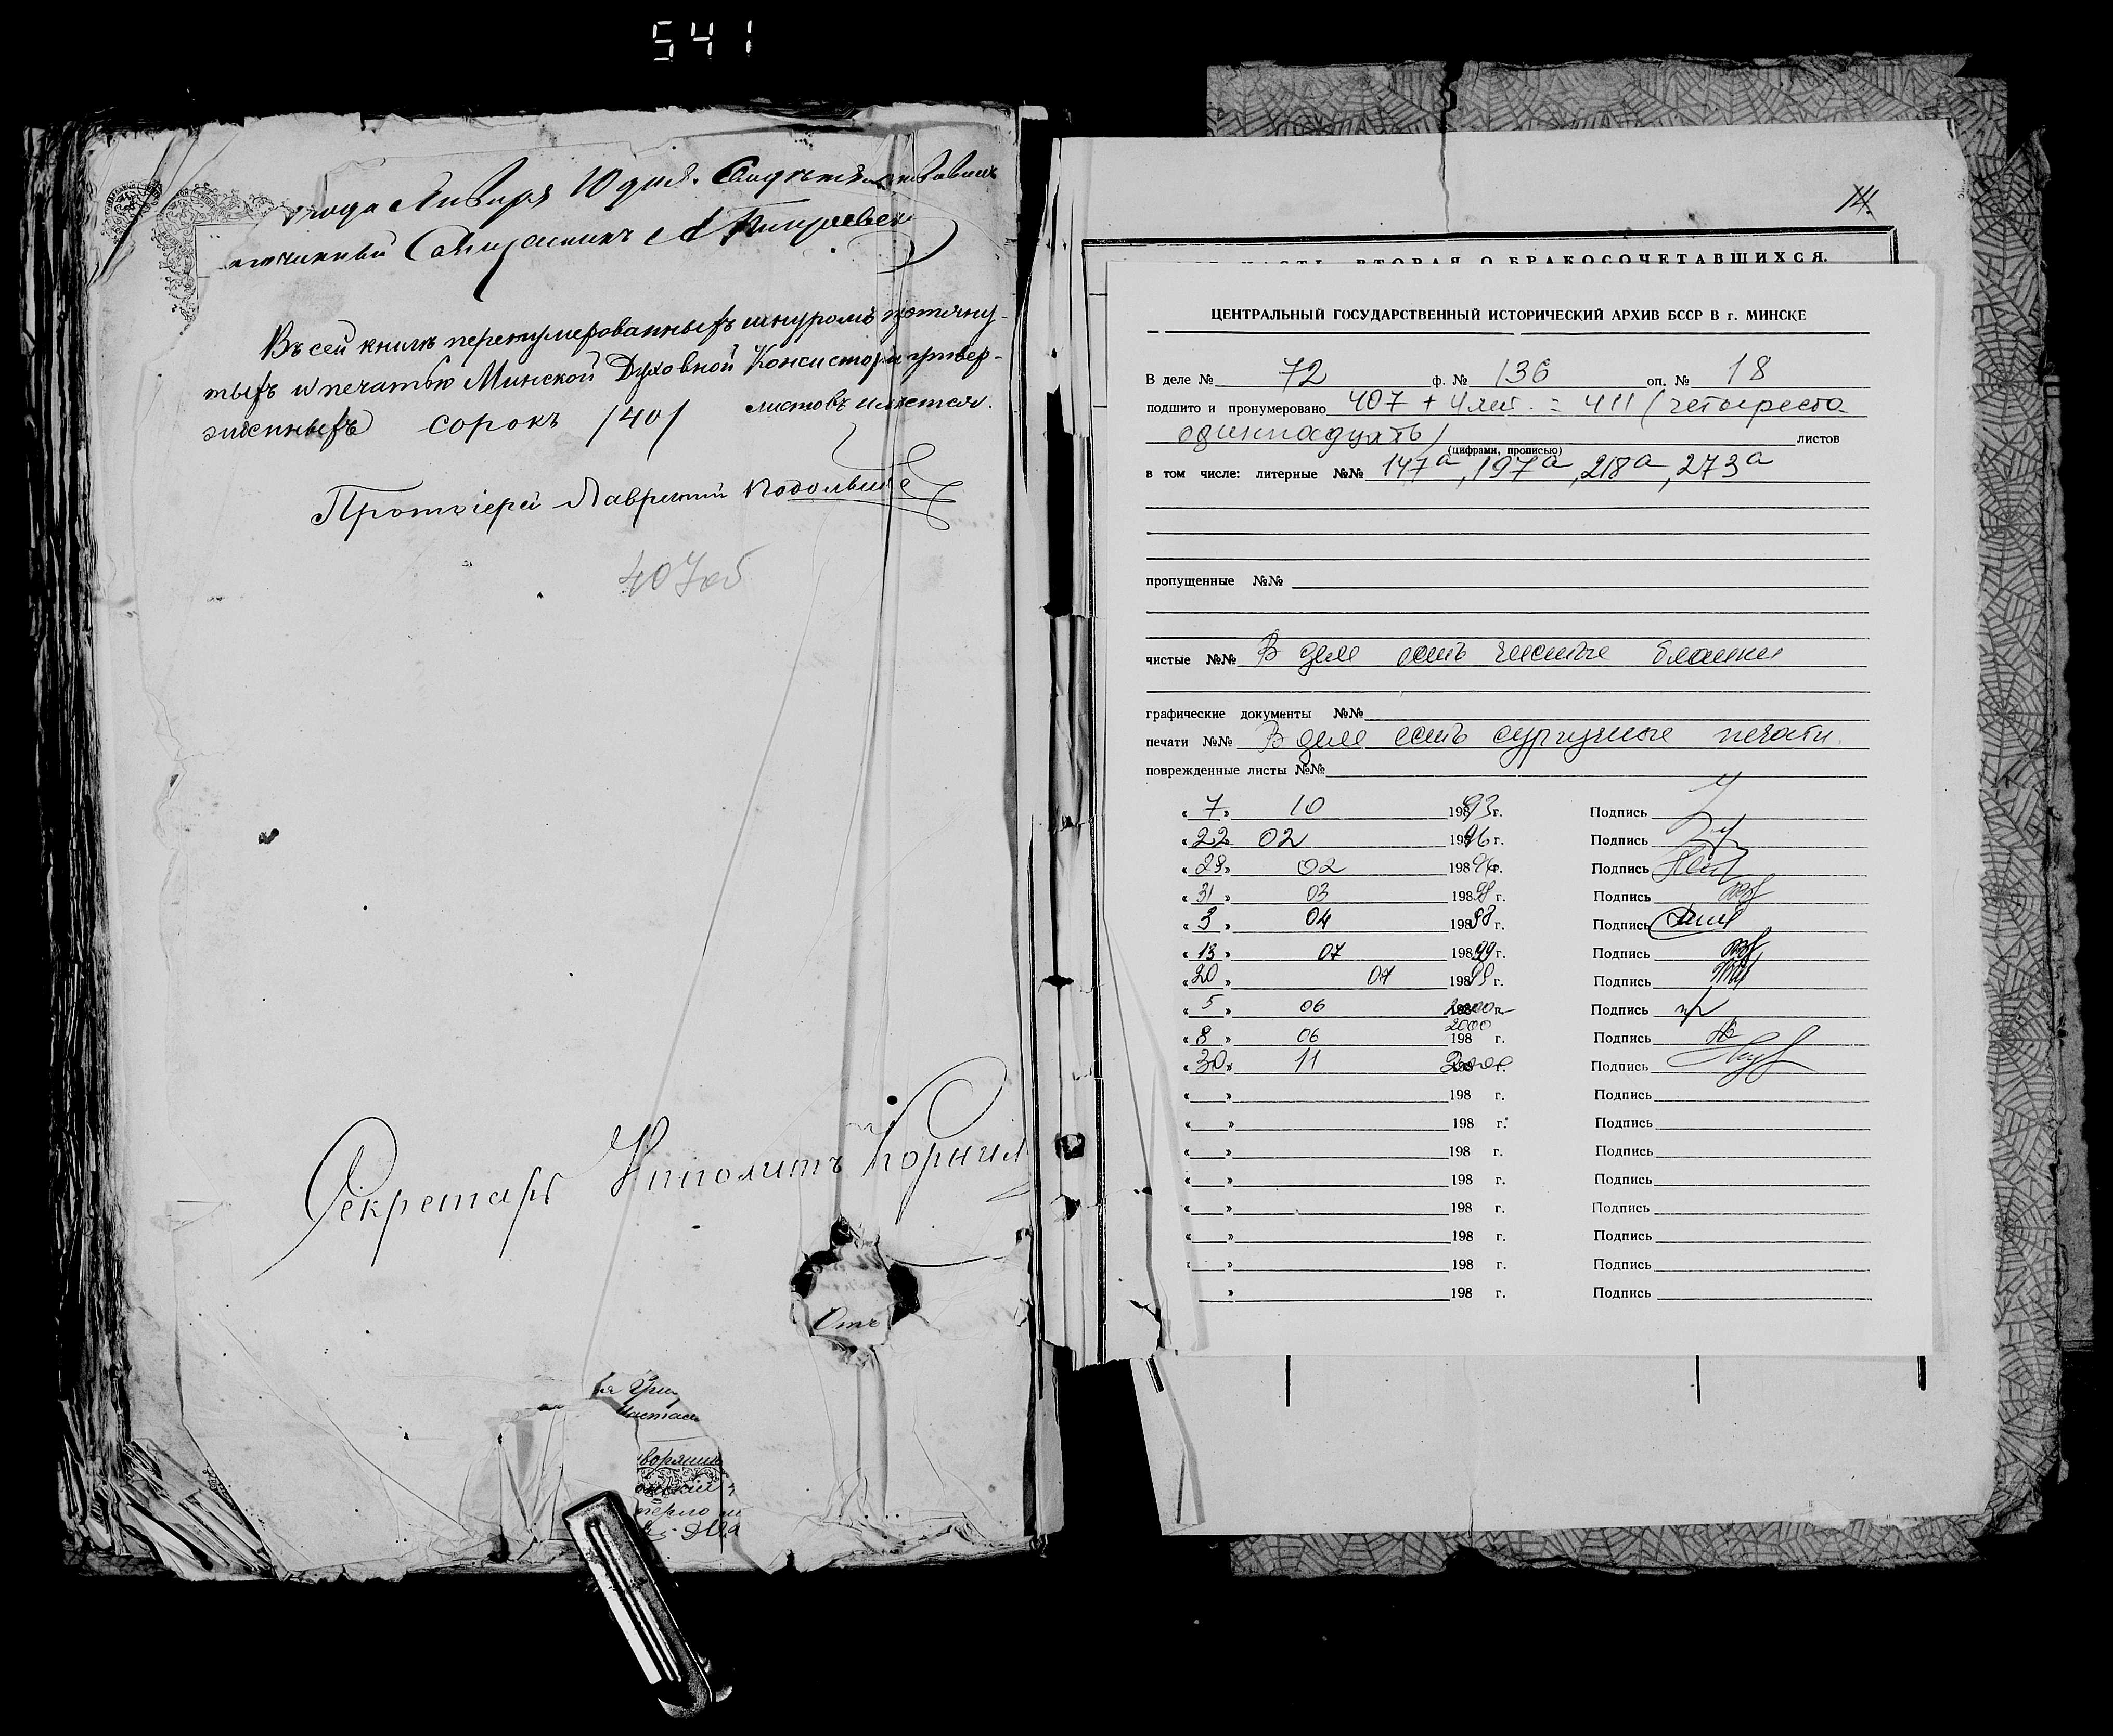 541
года Января 10 дня. Свидѣтельствовалъ
Священникъ А
Въ сей книгѣ перенумерованныхъ шнуромъ протяну-
тыхъ и печатью Минской Духовной Консисторіи утвер-
жденныхъ сорокъ /40/ листовъ имѣется.
Протоіерей Лаврентій
407об
Секретарь Ипполитъ
Отъ
14.
ЧАСТЬ ВТОРАЯ О БРАКОСОЧЕТАВШИХСЯ.
ЦЕНТРАЛЬНЫЙ ГОСУДАРСТВЕННЫЙ ИСТОРИЧЕСКИЙ АРХИВ БССР В г. МИНСКЕ
В деле № 72 ф. № 136 оп. № 18
подшито и пронумеровано 407 + 4 лит. = 411 (четыреста
одиннадцать) листов
(цифрами, прописью)
в том числе: литерные №№ 147а, 197а, 218а, 273а
пропущенные №№
чистые №№ В деле есть чистые бланки
графические документы №№
печати №№ В деле есть сургучные печати
поврежденные листы №№
« 7 » 10 19893г. Подпись
« 22 02 19896г. Подпись
« 28 » 02 19896г. Подпись
« 31 » 03 19898 г. Подпись
« 3 » 04 19898 г. Подпись
« 13 » 07 19899 г. Подпись
« 20 » 07 19899 г. Подпись
« 5 » 06 2000 г. Подпись
« 8 » 06 2000 198 г. Подпись
« 30 » 11 2000 г. Подпись
« » 198 г. Подпись
« » 198 г. Подпись
« » 198 г. Подпись
« » 198 г. Подпись
« » 198 г. Подпись
« » 198 г. Подпись
» 198 г. Подпись
» 198 г. Подпись